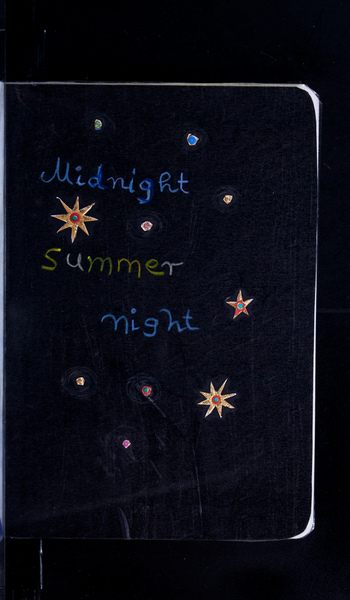 Midnight
summer
night